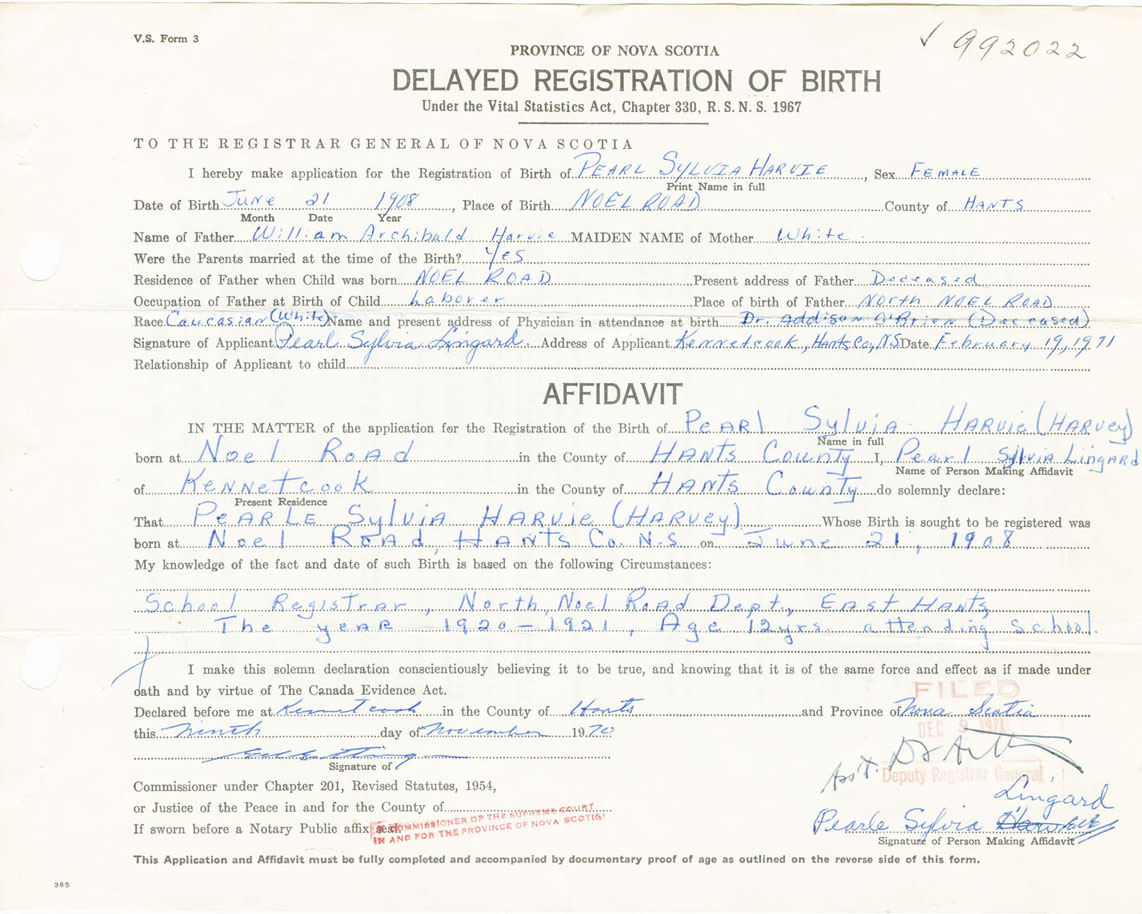 V.S. Form 3
✓ 992022
PROVINCE OF NOVA SCOTIA
DELAYED REGISTRATION OF BIRTH
Under the Vital Statistics Act, Chapter 330, R. S. N. S. 1967
TO THE REGISTRAR GENERAL OF NOVA SCOTIA
I hereby make application for the Registration of Birth of PEARL SYLVIA HARVIE, Sex FEMALE
Print Name in full
Date of Birth June 21 1908, Place of Birth NOEL ROAD County of HANTS
Month Date Year
Name of Father William Archibald Harvie MAIDEN NAME of Mother White.
Were the Parents married at the time of the Birth? Yes
Residence of Father when Child was born NOEL ROAD Present address of Father Deceased
Occupation of Father at Birth of Child Laborer Place of birth of Father NORTH NOEL ROAD
Race Caucasian (White) Name and present address of Physician in attendance at birth Dr. Addison O'Brien (Deceased)
Signature of Applicant Pearl Sylvia Lingard. Address of Applicant Kennetcook, Hants Co, NS Date February 19, 1971
Relationship of Applicant to child
AFFIDAVIT
IN THE MATTER of the application for the Registration of the Birth of PEARl Sylvia HARVie (HARVey)
Name in full
born at Noel Road in the County of HANTS County I, Pearl Sylvia Lingard
Name of Person Making Affidavit
of Kennetcook in the County of HANTS County do solemnly declare:
Present Residence
That PEARLE Sylvia HARVie (HARVey) Whose Birth is sought to be registered was
born at Noel Road, HANTS Co. N.S on June 21, 1908
My knowledge of the fact and date of such Birth is based on the following Circumstances:
School Registrar, North Noel Road Dept., EAST HANTS,
The year 1920-1921, Age 12yrs. attending School.
I make this solemn declaration conscientiously believing it to be true, and knowing that it is of the same force and effect as if made under
oath and by virtue of The Canada Evidence Act.
FILED
Declared before me at Kennetcook in the County of Hants and Province of Nova Scotia
this Ninth day of November 1970
DEC 9 1971
Signature of
Ass't.
Deputy Registrar General
Commissioner under Chapter 201, Revised Statutes, 1954,
or Justice of the Peace in and for the County of
Lingard
If sworn before a Notary Public affix seal.
A COMMISSIONER OF THE SUPREME COURT
IN AND FOR THE PROVINCE OF NOVA SCOTIA
Pearle Sylvia
Signature of Person Making Affidavit
This Application and Affidavit must be fully completed and accompanied by documentary proof of age as outlined on the reverse side of this form.
385